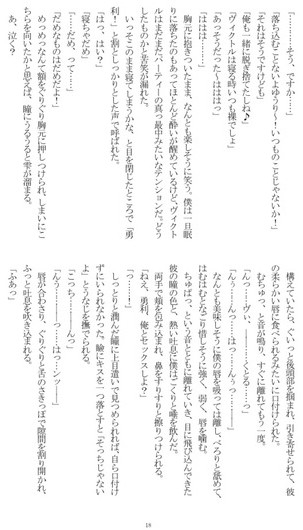 「………そう、ですか……」
「落ち込むことないよゆうり〜！いつものことじゃないか！」
「それはそうですけども」
「俺も一緒に脱ぎ捨てたしね♪」
「ヴィクトルは寝る時いつも裸でしょ」
「あっそうだった〜はははっ」
「はははは……」
胸元に抱きついたまま、なんとも楽しそうに笑う。僕は一旦眠
りに落ちたのもあってほとんど酔いが醒めているけど、ヴィクト
ルはまだまだパーティーの真っ最中みたいなテンションだ。どう
したものかと苦笑が漏れた。
いっそこのまま寝てしまうかな、と目を閉じたところで「勇
利！」と割としっかりとした声で呼ばれた。
「はっ、はい？」
「寝ちゃだめ」
「……だめ、って……」
「だめなものはだめだよ！」
めっめっ、なんて額をぐりぐり胸元に押しつけられ、しまいにこ
ちらを向いたかと思えば、瞳にうるうると雫が溜まる。
あ、泣く？
構えていたら、ぐいっと後頭部を掴まれ、引き寄せられて、彼
の柔らかい唇に食べられるみたいに口付けられた。
むちゅっ、と音が鳴り、すぐに離れてもう一度。
「んっ……ヴぃ、……くとる……っ」
「んぅ……んっ……はっ……んぅっ……」
なんとも美味しそうに僕の唇を吸っては離し、べろりと舐めて、
はむはむとなごり惜しそうに強く、弱く、唇を噛む。
ちゅぽっ、という音とともに離れていき、目に飛び込んできた
彼の瞳の色と、熱い吐息に僕はごくりと喉を飲んだ。
両手で頬を包み込まれ、鼻をすりすりと擦りつけられる。
「ねえ、勇利、俺とセックスしよ？」
「っ……！」
しっとりと潤んだ瞳に上目遣いで見つめられれば、自ら口付け
ずにいられなかった。瞼にキスを一つ落とすと「そっちじゃない
よ」とうなじを撫でられる。
「こっち………んっ」
「んぅ……っ……はっ……ンッ……」
唇が合わさり、ぐりぐりと舌のさきっぽで隙間を割り開かれ、
ふっと吐息を吹き込まれる。
「ふあっ」
18